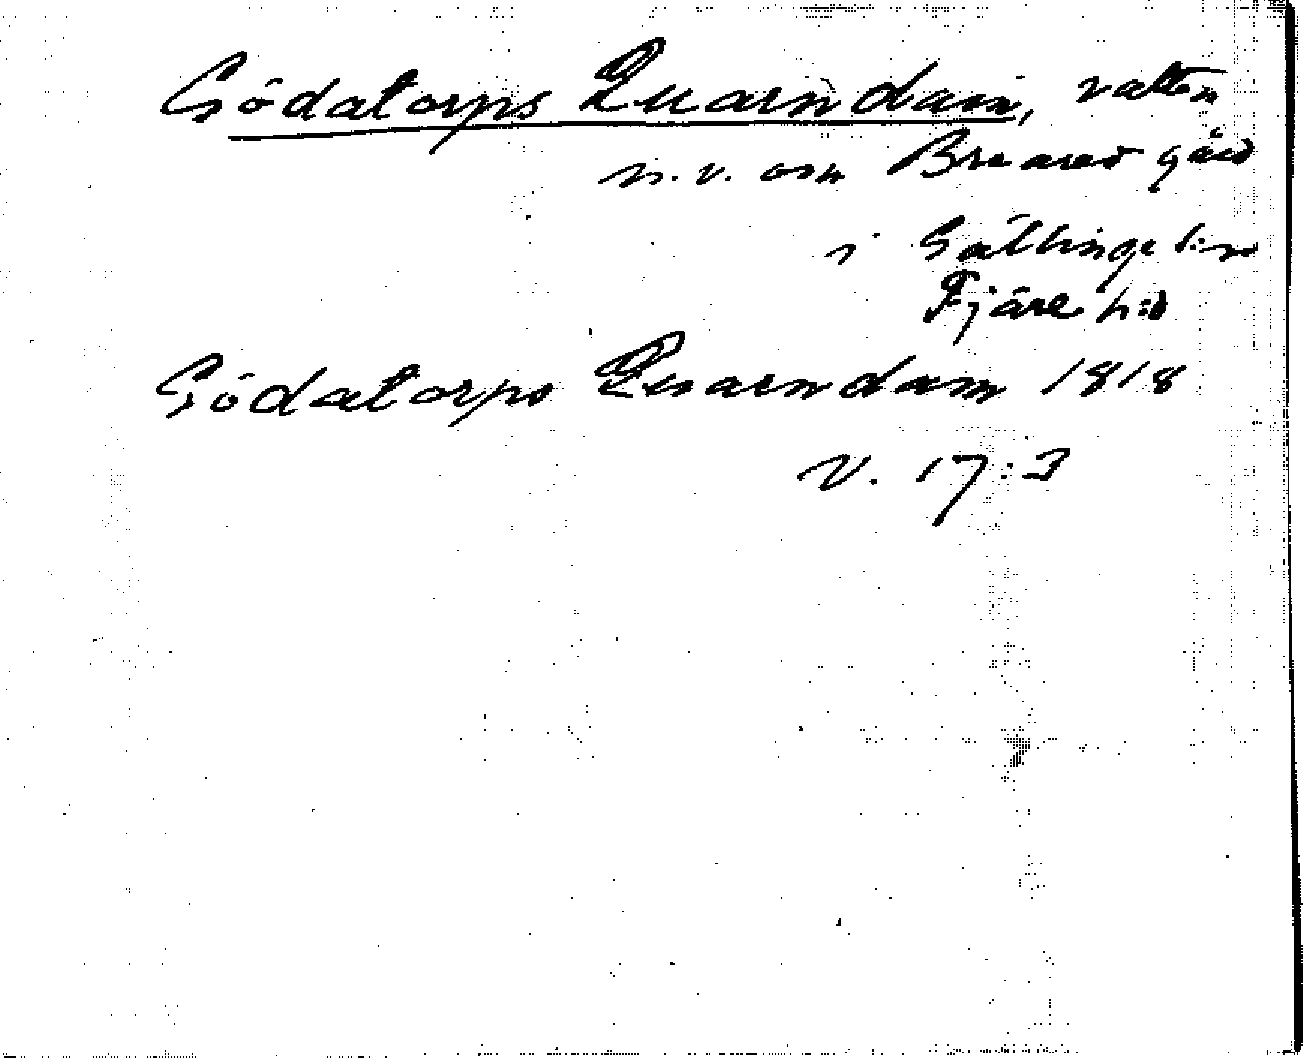 Gödatorps Quarndam, vatten
n.v. om Breared gård
i Gällinge s:n
Fjäre h:d
Gödatorps Quarndam 1818
V. 17:3